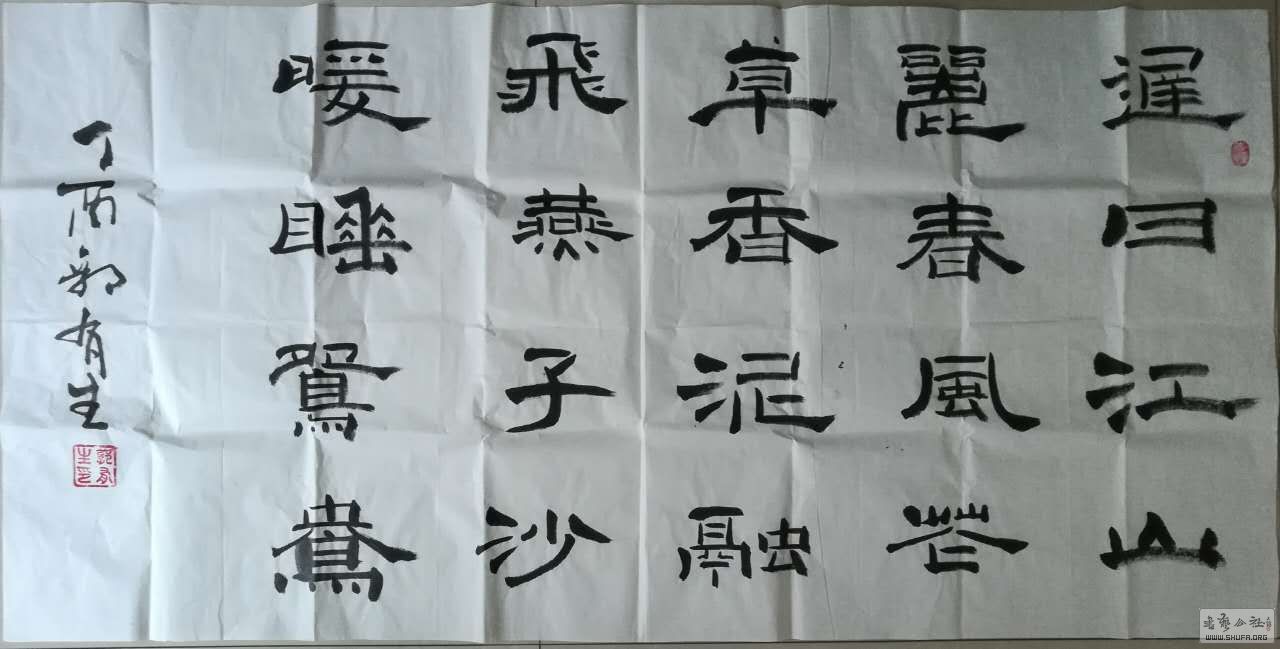 遲日江山
麗春風花
草香泥融
飛燕子沙
暖睡鴛鴦
丁酉郭有生
郭有生印
書藝公社
WWW.SHUFA.ORG